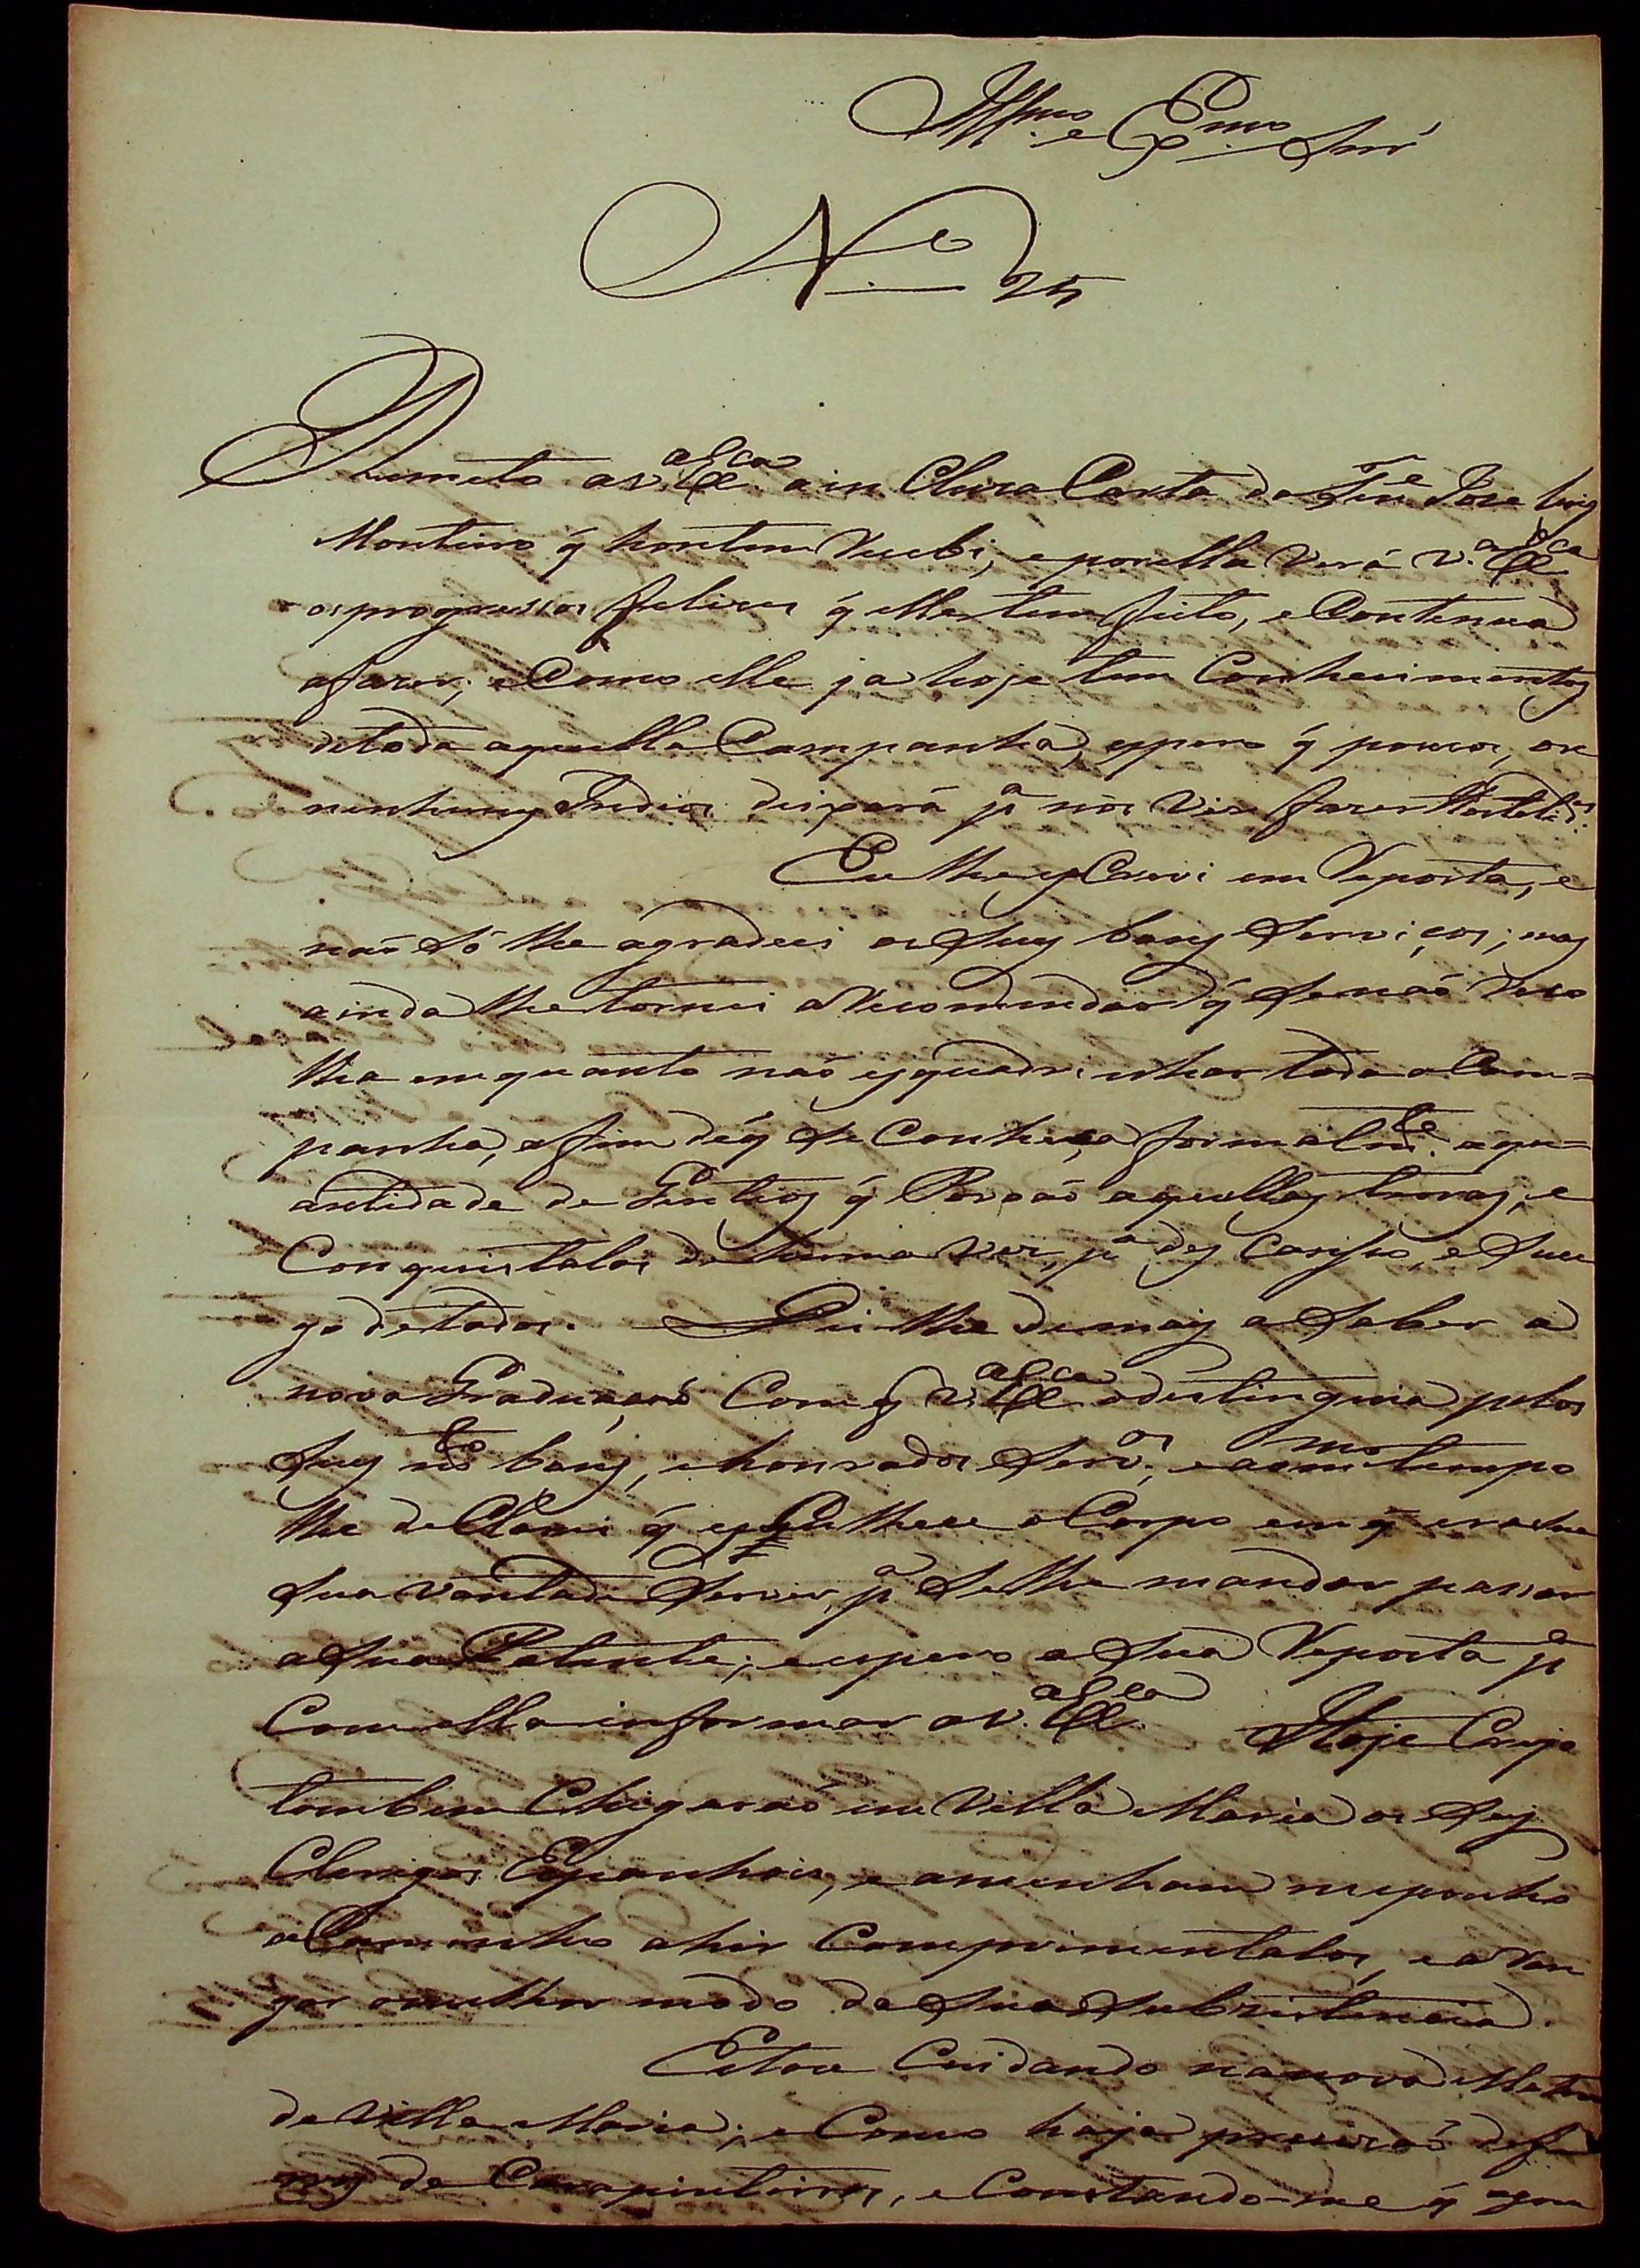 Illmo e Exmo Snr
No 25
Remeto a V. Exca a in Cluza Carta do Tene Joze Luis
Monteiro q̃ hontem Recebi, e por ella verá V. Exca
os progressos felizes q̃ elle tem feito, e Contenua
a fazer; e Como elle ja hoje tem Conhecimentos
de toda aquella Campanha, espero q̃ poucos, ou
nenhuns Indios deixará pa nos vir fazer Hostelides
Eu lhe esCrevi em Reposta, e
naõ só lhe agradeci os Seus bons Serviços; mas
ainda lhe tornei a Recomendar q̃ Se naõ Reco
lha em quanto naõ esquadrinhar toda a Cam=
panha, a fim de q̃ Se Conheça formalmte a qu=
antidade de Gentios q̃ Povoaõ aquellas terras, e
Conquistalos de huma vez, pa des Canso, e Suce
go de todos. Dei lhe de mais a Saber a
nova Graduaçaõ Com q̃ V. Exca o destinguia pelos
Seus mto bons, e honrados Servos; e ao mmo tempo
lhe deClarei q̃ esColhece o Corpo em q̃ era de
Sua vontade Servir, pa Se lhe mandar passar
a Sua Patente; e espero a Sua Reposta pa
Com ella informar a V. Exca Hoje Cuja
tambem Chegaraõ em Villa Maria os Seis
Clerigos Espanhois, e amenham me ponho
a Caminho a hir Comprimentalos, e a Ran
gar o melhor modo da Sua Subzistencia.
Estou Cuidando na nova Matris
de Villa Maria; e Como haja precizaõ de fe
rros de Carapinteiros, e Constando-me q̃ agora